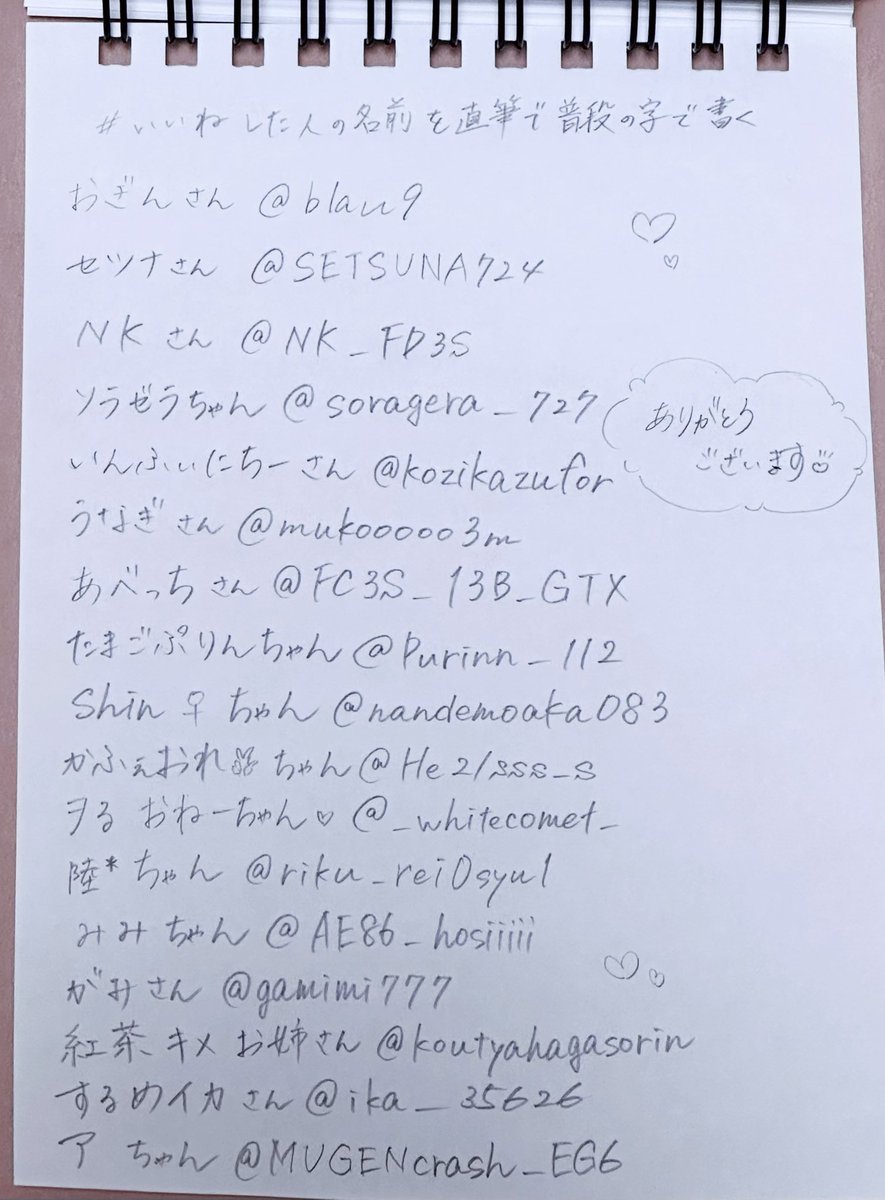 #いいねした人の名前を直筆で普段の字で書く
おぎんさん @blau9
セツナさん @SETSUNA724
NKさん @NK_FD3S
ソラゼラちゃん @soragera_727
ありがとう
ございます
いんふぃにちーさん @kozikazufor
うなぎさん @mukooooo3m
あべっちさん @FC3S_13B_GTX
たまごぷりんちゃん @Purinn_112
Shin♀ちゃん @nandemoaka083
かふぇおれ ちゃん @He21sss_s
ヲる おねーちゃん♡ @_whitecomet_
陸*ちゃん @riku_rei0syu1
みみちゃん @AE86_hosiiiii
がみさん @gamimi777
紅茶、キメお姉さん @koutyahagasorin
するめイカさん @ika_35626
ア ちゃん @MUGENcrash_EG6